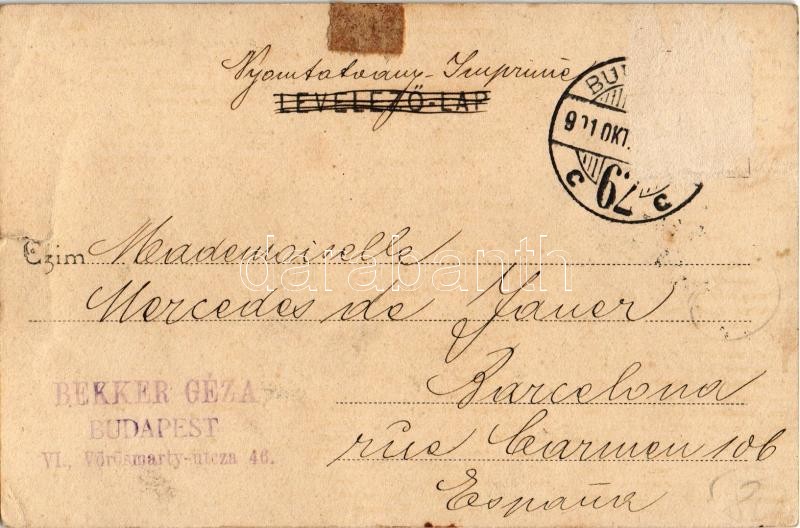 Nyomtatvany - Imprimé
LEVELEZŐ-LAP
BU
901 OKT.
79
c c
Czim Mademoiselle
darabanth
Mercedes de Janer
BEKKER GÉZA
Barcelona
BUDAPEST
rue Carmen 106
VI., Vörösmarty-utcza 46.
España